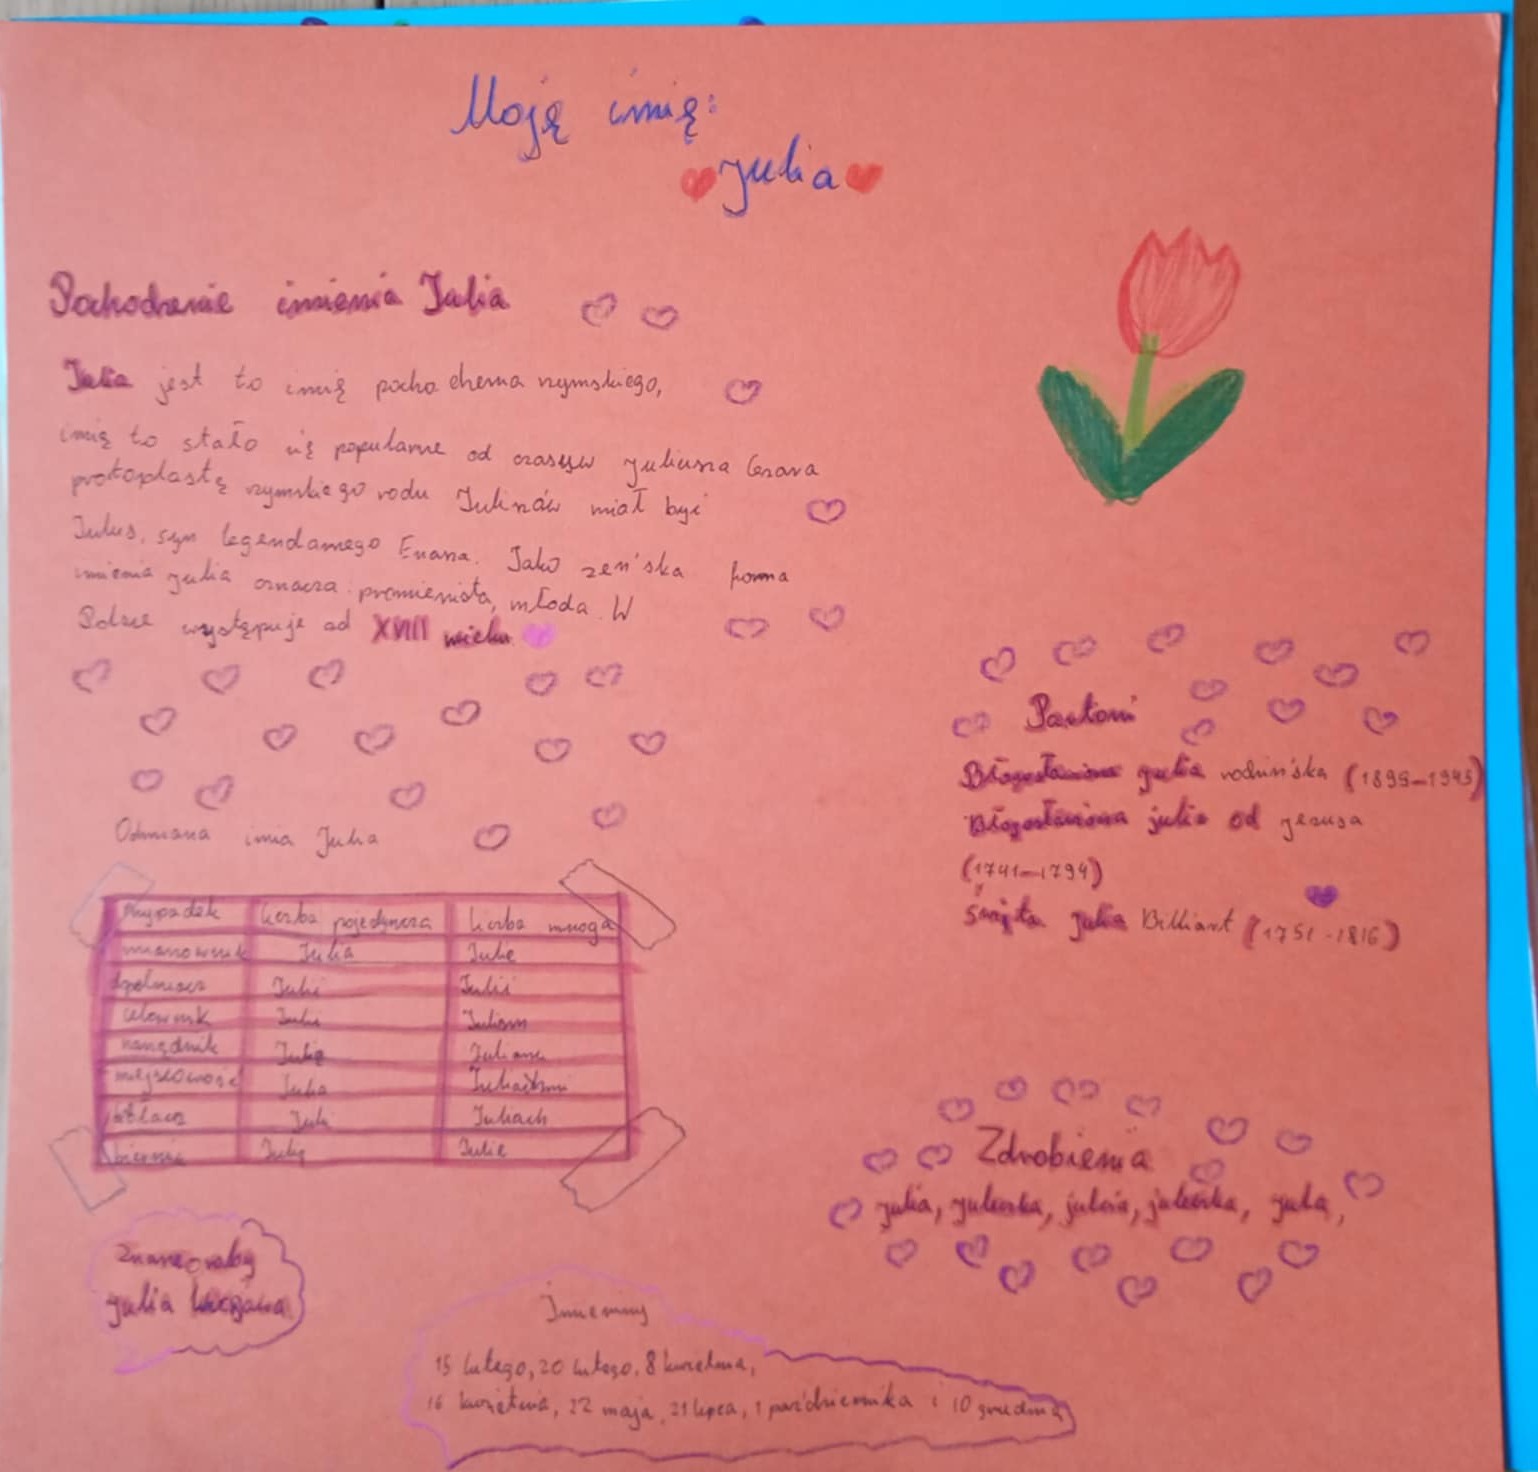 Moję imię:
Julia
Pochodzenie imienia Julia
Julia jest to imię pocho dzenia rzymskiego,
imię to stało się popularne od czasów juliusza Cezara
protoplastę rzymskiego rodu Juliszów miał być
Julus, syn legendarnego Enasza. Jako żen'ska forma
imienia julia oznacza: promienista, młoda. W
Polsce występuje od XVIII wieku
Patroni
Błogosławiona julia rodzin'ska (1899-1945)
Błogosławiona julia od jezusa
(1741-1794)
Święta julia Billiart (1751-1816)
Odmiana imia Julia
Przypadek liczba pojedyncza liczba mnoga
mianownik Julia Julie
dpełniacz Juli Julii
celownik Juli Juliom
narzędnik Julią
miejscownść Julia
Juli Juliach
Julię Julie
Zdrobienia
julia, juleczka, julcia, juleńka, jula,
julia
Imieniny
15 lutego, 20 lutego, 8 kwietnia,
16 kwietnia, 22 maja, 21 lipca, 1 paz'dziernika i 10 grudnia